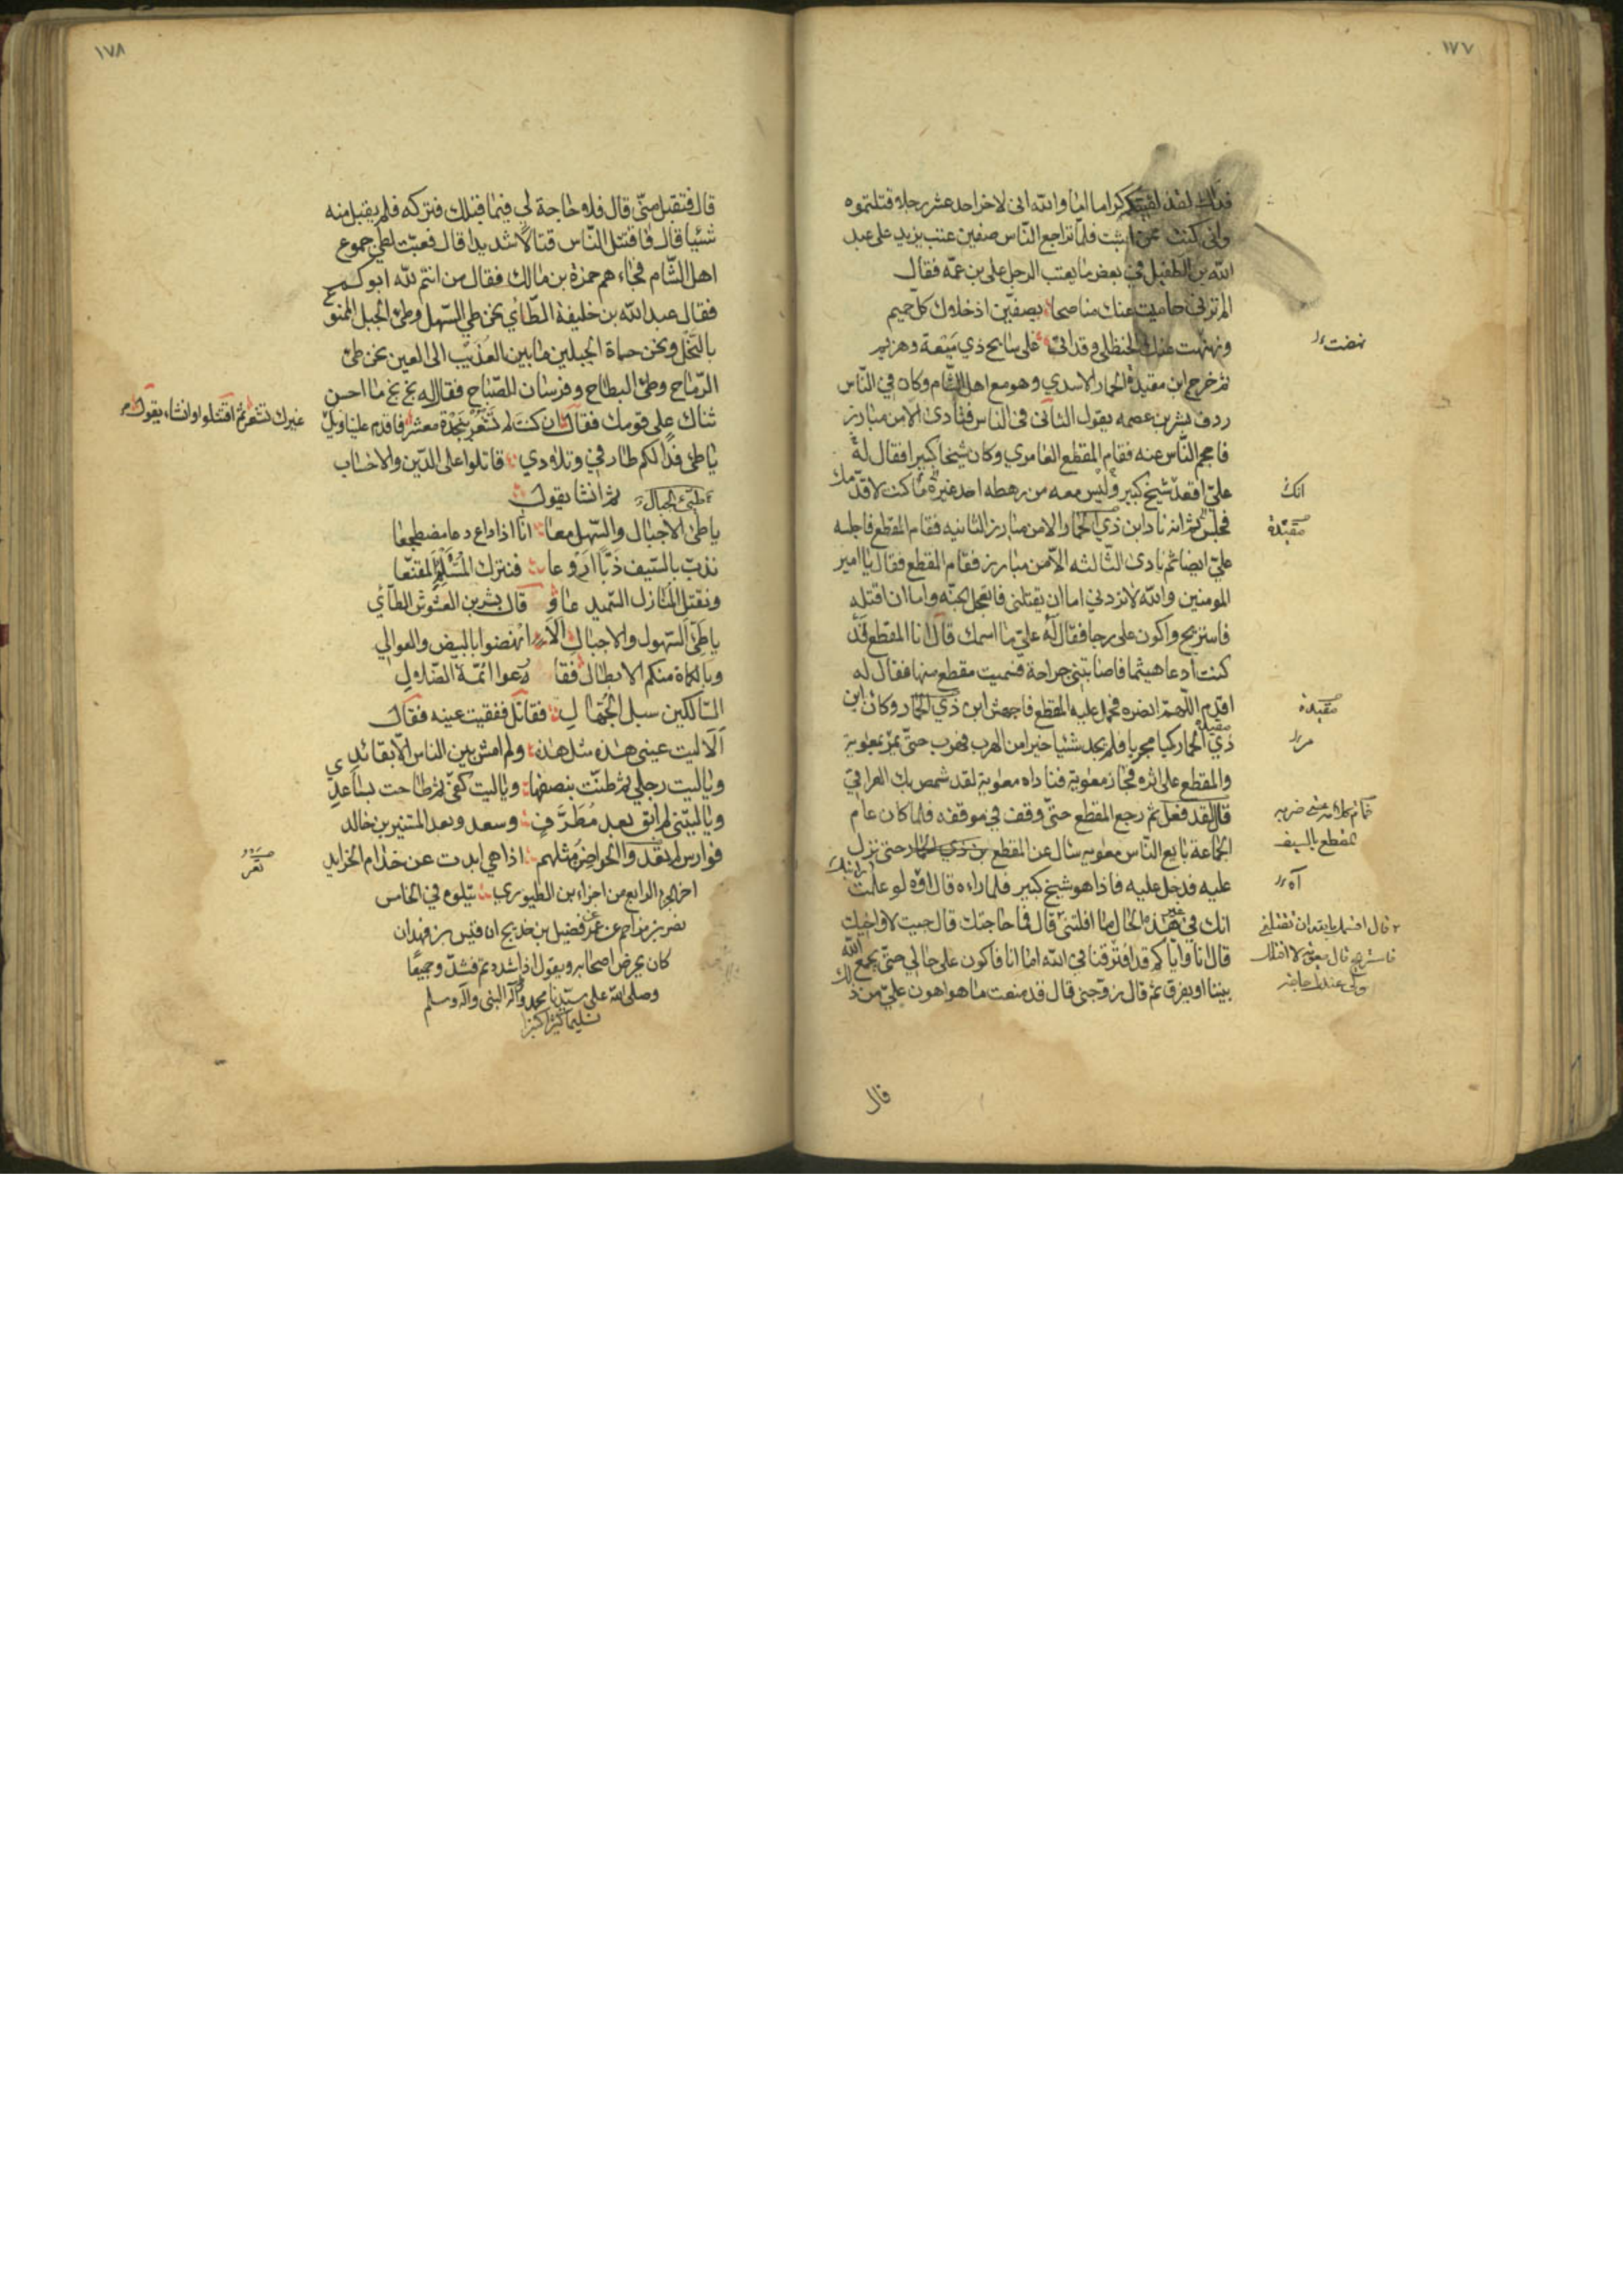 ١٧٧
فداك لقد لقيتكم كراما اما والله اني لاخر احد عشر رجلا قتلتموه
واني كنت فلما تراجع الناس صفين عتب يزيد على عبد
الله بن الطفيل في بعض ما يعتب الرجل على بن عمه فقال
الم ترني حاميت عنك مناصحا بصفين اذ خلاوك كل حميم
ونهنهت عنك الحنظلي وقد اتى على سابح ذي ميعة وهزيم
نهضت
ثم خرج ابن مقيدة الحمار الاسدي وهو مع اهل الشام وكان في الناس
ردف بشر بن عصمه يقول الثاني في الناس فنادى الا من مبارز
فاحجم الناس عنه فقام المقطع العامري وكان شيخا كبيرا فقال له
علي اقعد شيخ كبير وليس معه من رهطه احد غيره ما كنت لاقدمك
انك
فجلس ثم انه نادا ابن ذي الحمار الا من مبارز الثانيه فقام المقطع فاجلسه
مقيدة
علي ايضا ثم نادى الثالثه الا من مبارز فقام المقطع فقال يا امير
المومنين والله لا تردني اما ان يقتلني فاتعجل الجنه واما ان اقتله
فاستريح واكون على رجا فقال له علي ما اسمك قال انا المقطع قد
كنت ادعا هيثما فاصابتني جراحة فسميت مقطع منها فقال له
اقدم اللهم انصره فحمل عليه المقطع فاجهش ابن ذي الحمار وكان ابن
مقيدة
ذي الحمار كيا مجربا فلم يجد شيئا خيرا من الهرب فهرب حتى يمر بمعوية
مقيدة
مر
والمقطع على اثره فجاز معوية فناداه معوية لقد شمص بك العراقي
قال لقد فعل ثم رجع المقطع حتى وقف في موقفه فلما كان عام
الجماعة بايع الناس معويه سال عن المقطع بن ذي الحمار حتى نزل
المقطع بالسيف
عليه فدخل عليه فاذا هو شيخ كبير فلما راءه قال اوه لو علمت
آه
انك في هذه الحال لما افلتني قال فما حاجتك قال جيت لاواخيك
قال انا واياكم قد افترقنا في الله اما انا فاكون على حالي حتى يجمع الله
بيننا او يفرق ثم قال زوجني قال قد منعت ما هو اهون علي من ذلك
قال
١٧٨
قال فتقبل مني قال فلا حاجة لي فيما قبلك فتركه فلم يقبل منه
شيئا قال فاقتتل الناس قتالا شديدا قال فعبت لطي جموع
اهل الشام فجاءهم حمزة بن مالك فقال من انتم لله ابوكم
فقال عبد الله بن خليفة الطائي نحن طي السهل وطي الجبل الممنوع
بالنخل ونحن حماة الجبلين ما بين العذيب الى العين نحن طي
الرماح وطي البطاح وفرسان الصباح فقال له بخ بخ ما احسن
ثناك على قومك فقال ان كنت لم تشعر بنجدة معشر فاقدم علينا ويل
غيرك تشعر ثم اقتتلوا وانشاء يقول
يا طي فدالكم طارفي وتلادي قاتلوا على الدين والاحساب
ثم انشا يقول
يا طي الاجبال والسهل معا انا اذا داع دعا مضطجعا
نذب بالسيف ذبا اروعا فنترك المستلئم المقنعا
ونقتل المنازل السميدعا و قال بشر بن العشوش الطائي
يا طي السهول والاجبال الا انهضوا بالبيض والعوالي
وبالكماة منكم الابطال فقارعوا ائمة الضلال
السالكين سبل الجهال فقاتل ففقيت عينه فقال
الا ليت عيني هذه مثل هذه ولم امش بين الناس الا بقائدي
ويا ليت رجلي ثم طنت بنصفها ويا ليت كفي ثم طاحت بساعد
ويا ليتني لم ابق بعد مطرف وسعد وبعد المستنير بن خالد
فوارس لم تغد والحواضن مثلهم اذا هي ابدت عن خدام الخرايد
اخر الجزء الرابع من اجزاء ابن الطيوري يتلوه في الخامس
نصر بن مزاحم عن عمر فضيل بن خديج ان قيس بن فهدان
كان يحرض اصحابه ويقول اذا شددتم فشدوا جميعا
وصلى الله على سيدنا محمد النبي واله وسلم
تسليما كثيرا كثيرا